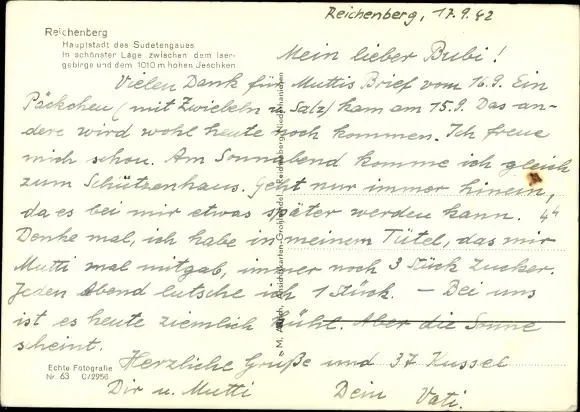 Reichenberg, 17.9.42
Reichenberg
Hauptstadt des Sudetengaues
In schönster Lage zwischen dem Iser-
gebirge und dem 1010 m hohen Jeschken
Mein lieber Bubi!
Vielen Dank für Muttis Brief vom 16.9. Ein
Päckchen (mit Zwiebeln u. Salz) kam am 15.9. Das an-
dere wird wohl heute noch kommen. Ich freue
mich schon. Am Sonnabend komme ich gleich
zum Schützenhaus. Geht nur immer hinein,
da es bei mir etwas später werden kann.
Denke mal, ich habe in meinem Tütel, das mir
Mutti mal mitgab, immer noch 3 Stück Zucker.
Jeden Abend lutsche ich 1 Stück. – Bei uns
ist es heute ziemlich kühl. Aber die Sonne
scheint.
Herzliche Grüße und 37 Küssel
Dir u. Mutti Dein Vati.
Echte Fotografie
Nr. 63 C/2956